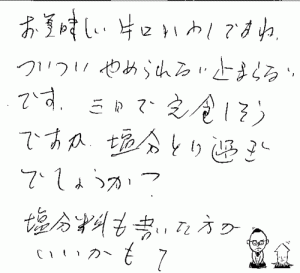 お美味しい 片口いわしですね、
ついつい やめられない 止まらない
です。三日で完食しそう
ですが、塩分とり過ぎ
でしょうか?
塩分料も書いた方が
いいかも?